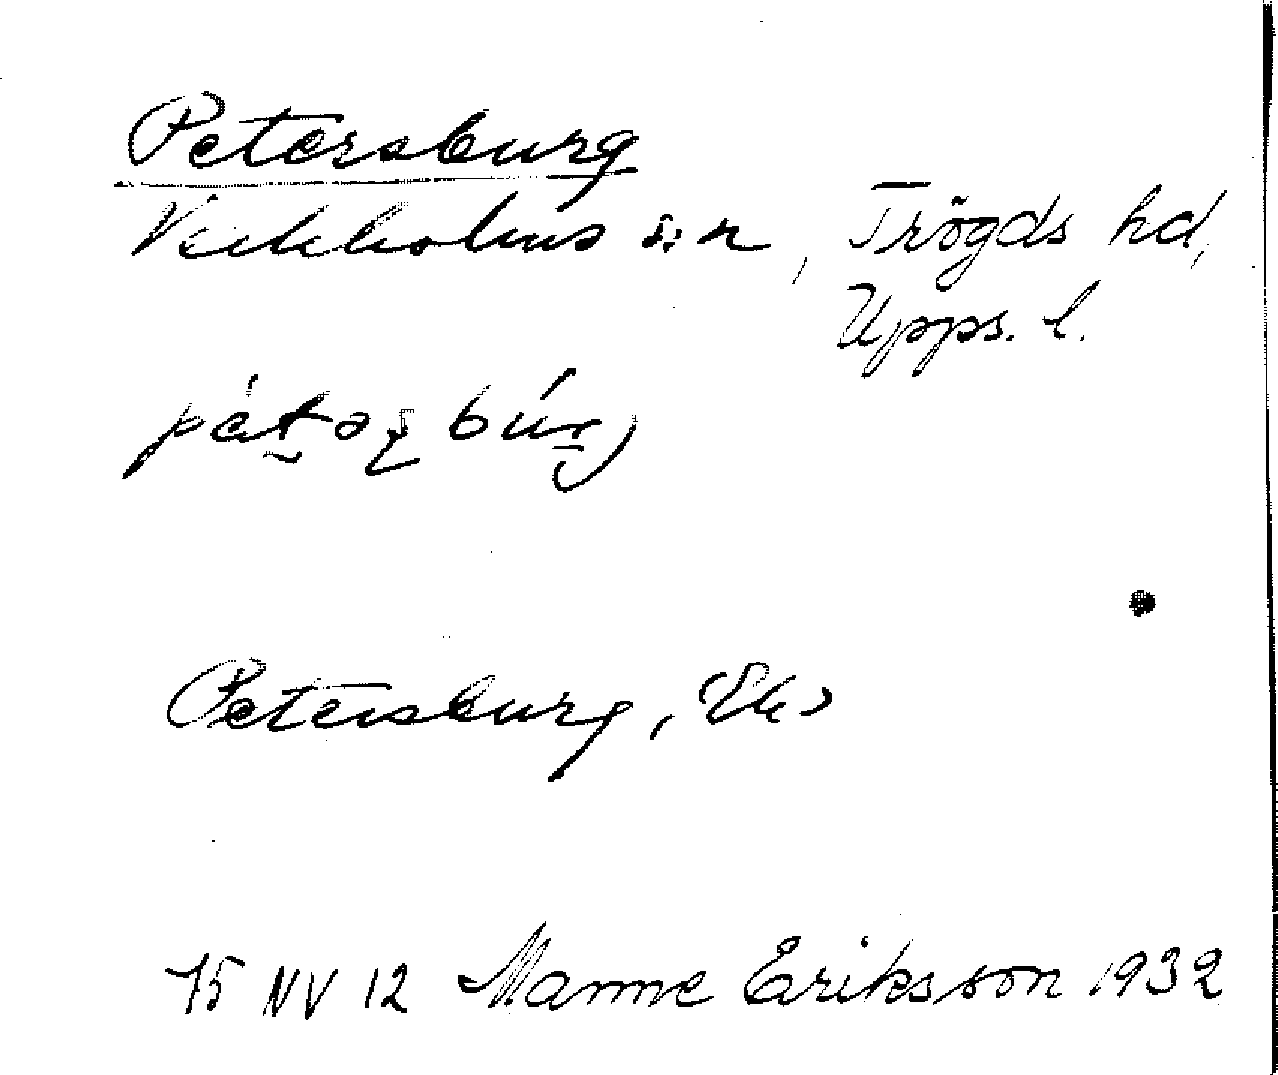 Petersburg
Veckholms sn, Trögds hd,
Upps. l.
Petersburg, Ek
75 NV 12 Manne Eriksson 1932